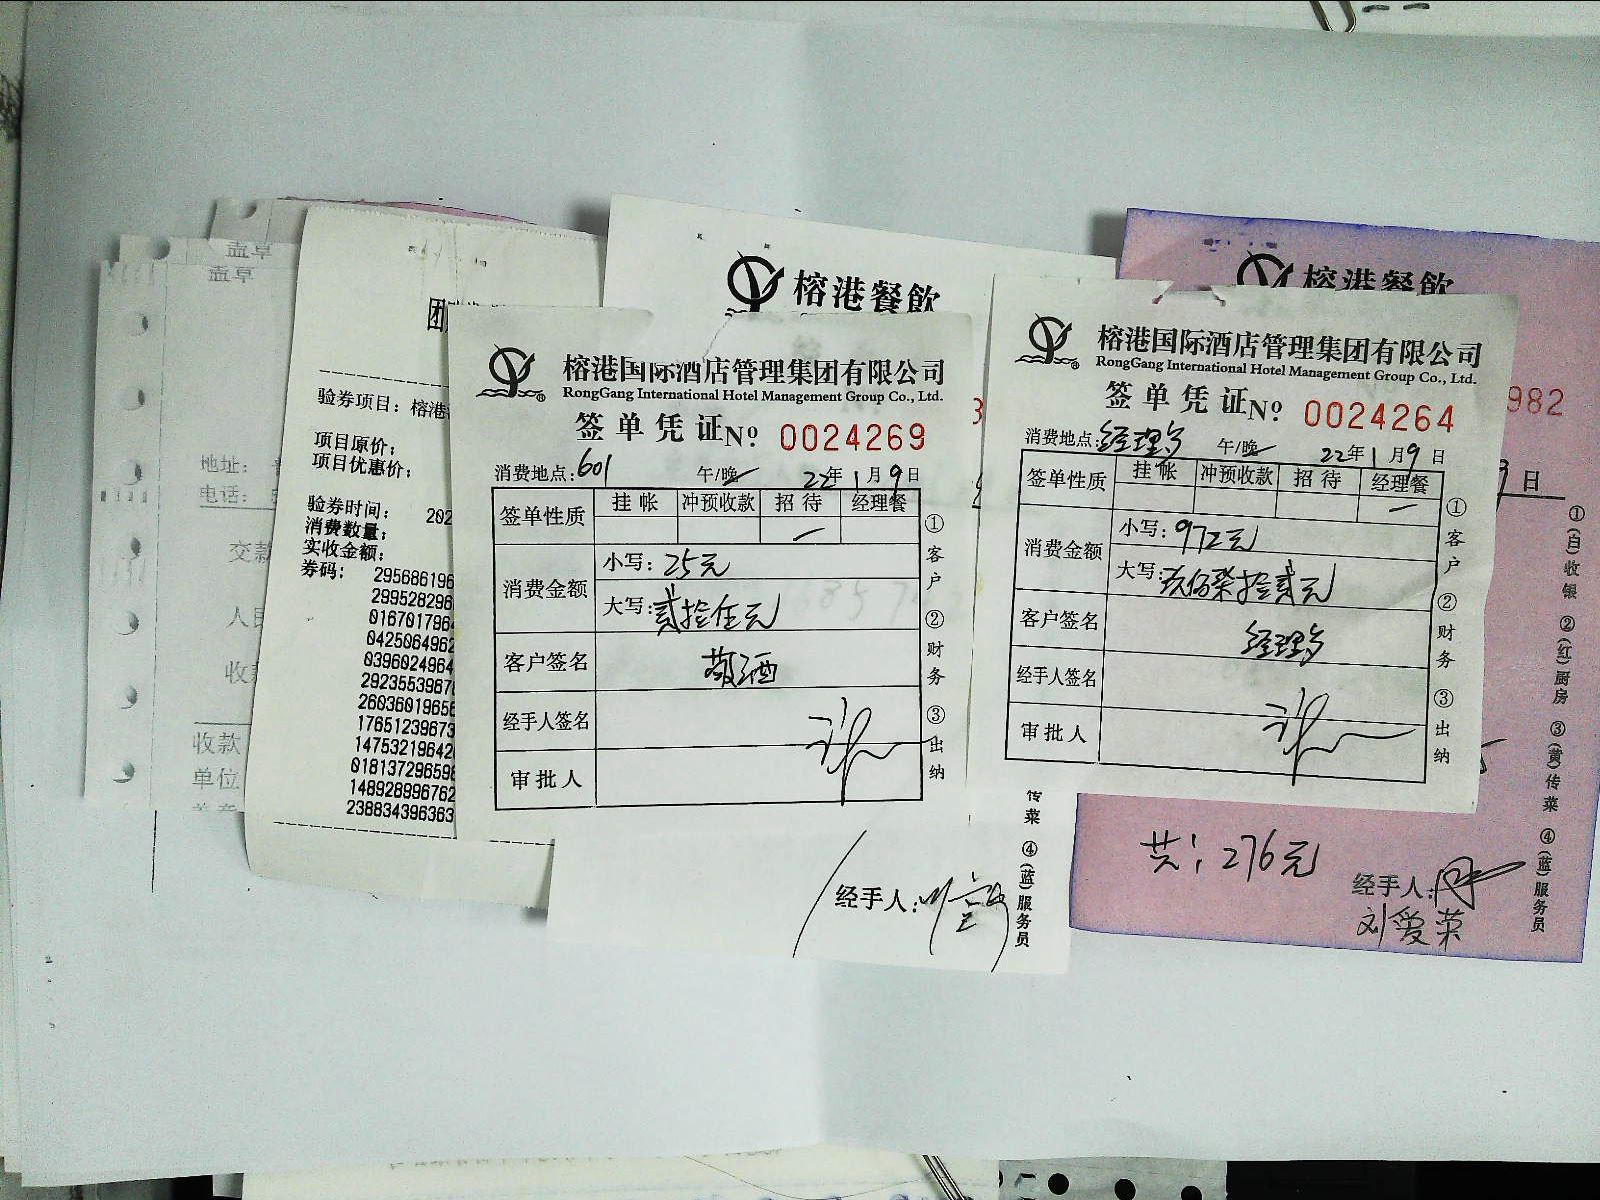 壶草
壶草
地址：
电话：
交款
人民
收款
收款
单位
团
验券项目：榕港
项目原价；
项目优惠价；
验券时间： 202
消费数量；
实收金额；
券码： 295686196
299528296
016701796
042506496
039602496
2923553967
26036019656
17651239673
14753219642
01813729659
14892899676
23883439636
榕港餐飲
传菜 ④(蓝)服务员
经手人：
榕港国际酒店管理集团有限公司
RongGang International Hotel Management Group Co., Ltd.
签单凭证 № 0024269
消费地点：601 午/晚 22年1月9日
签单性质 挂帐 冲预收款 招待 经理餐
消费金额 小写：25元
大写：贰拾伍元
客户签名 敬酒
经手人签名
审批人
①客户 ②财务 ③出纳
榕港国际酒店管理集团有限公司
RongGang International Hotel Management Group Co., Ltd.
签单凭证 № 0024264
消费地点：经理 午/晚 22年1月9日
签单性质 挂帐 冲预收款 招待 经理餐
消费金额 小写：972元
大写：玖佰柒拾贰元
客户签名 经理
经手人签名
审批人
①客户 ②财务 ③出纳
榕港餐飲
982
9日
①(白)收银 ②(红)厨房 ③(黄)传菜 ④(蓝)服务员
共；276元
经手人：
刘爱荣